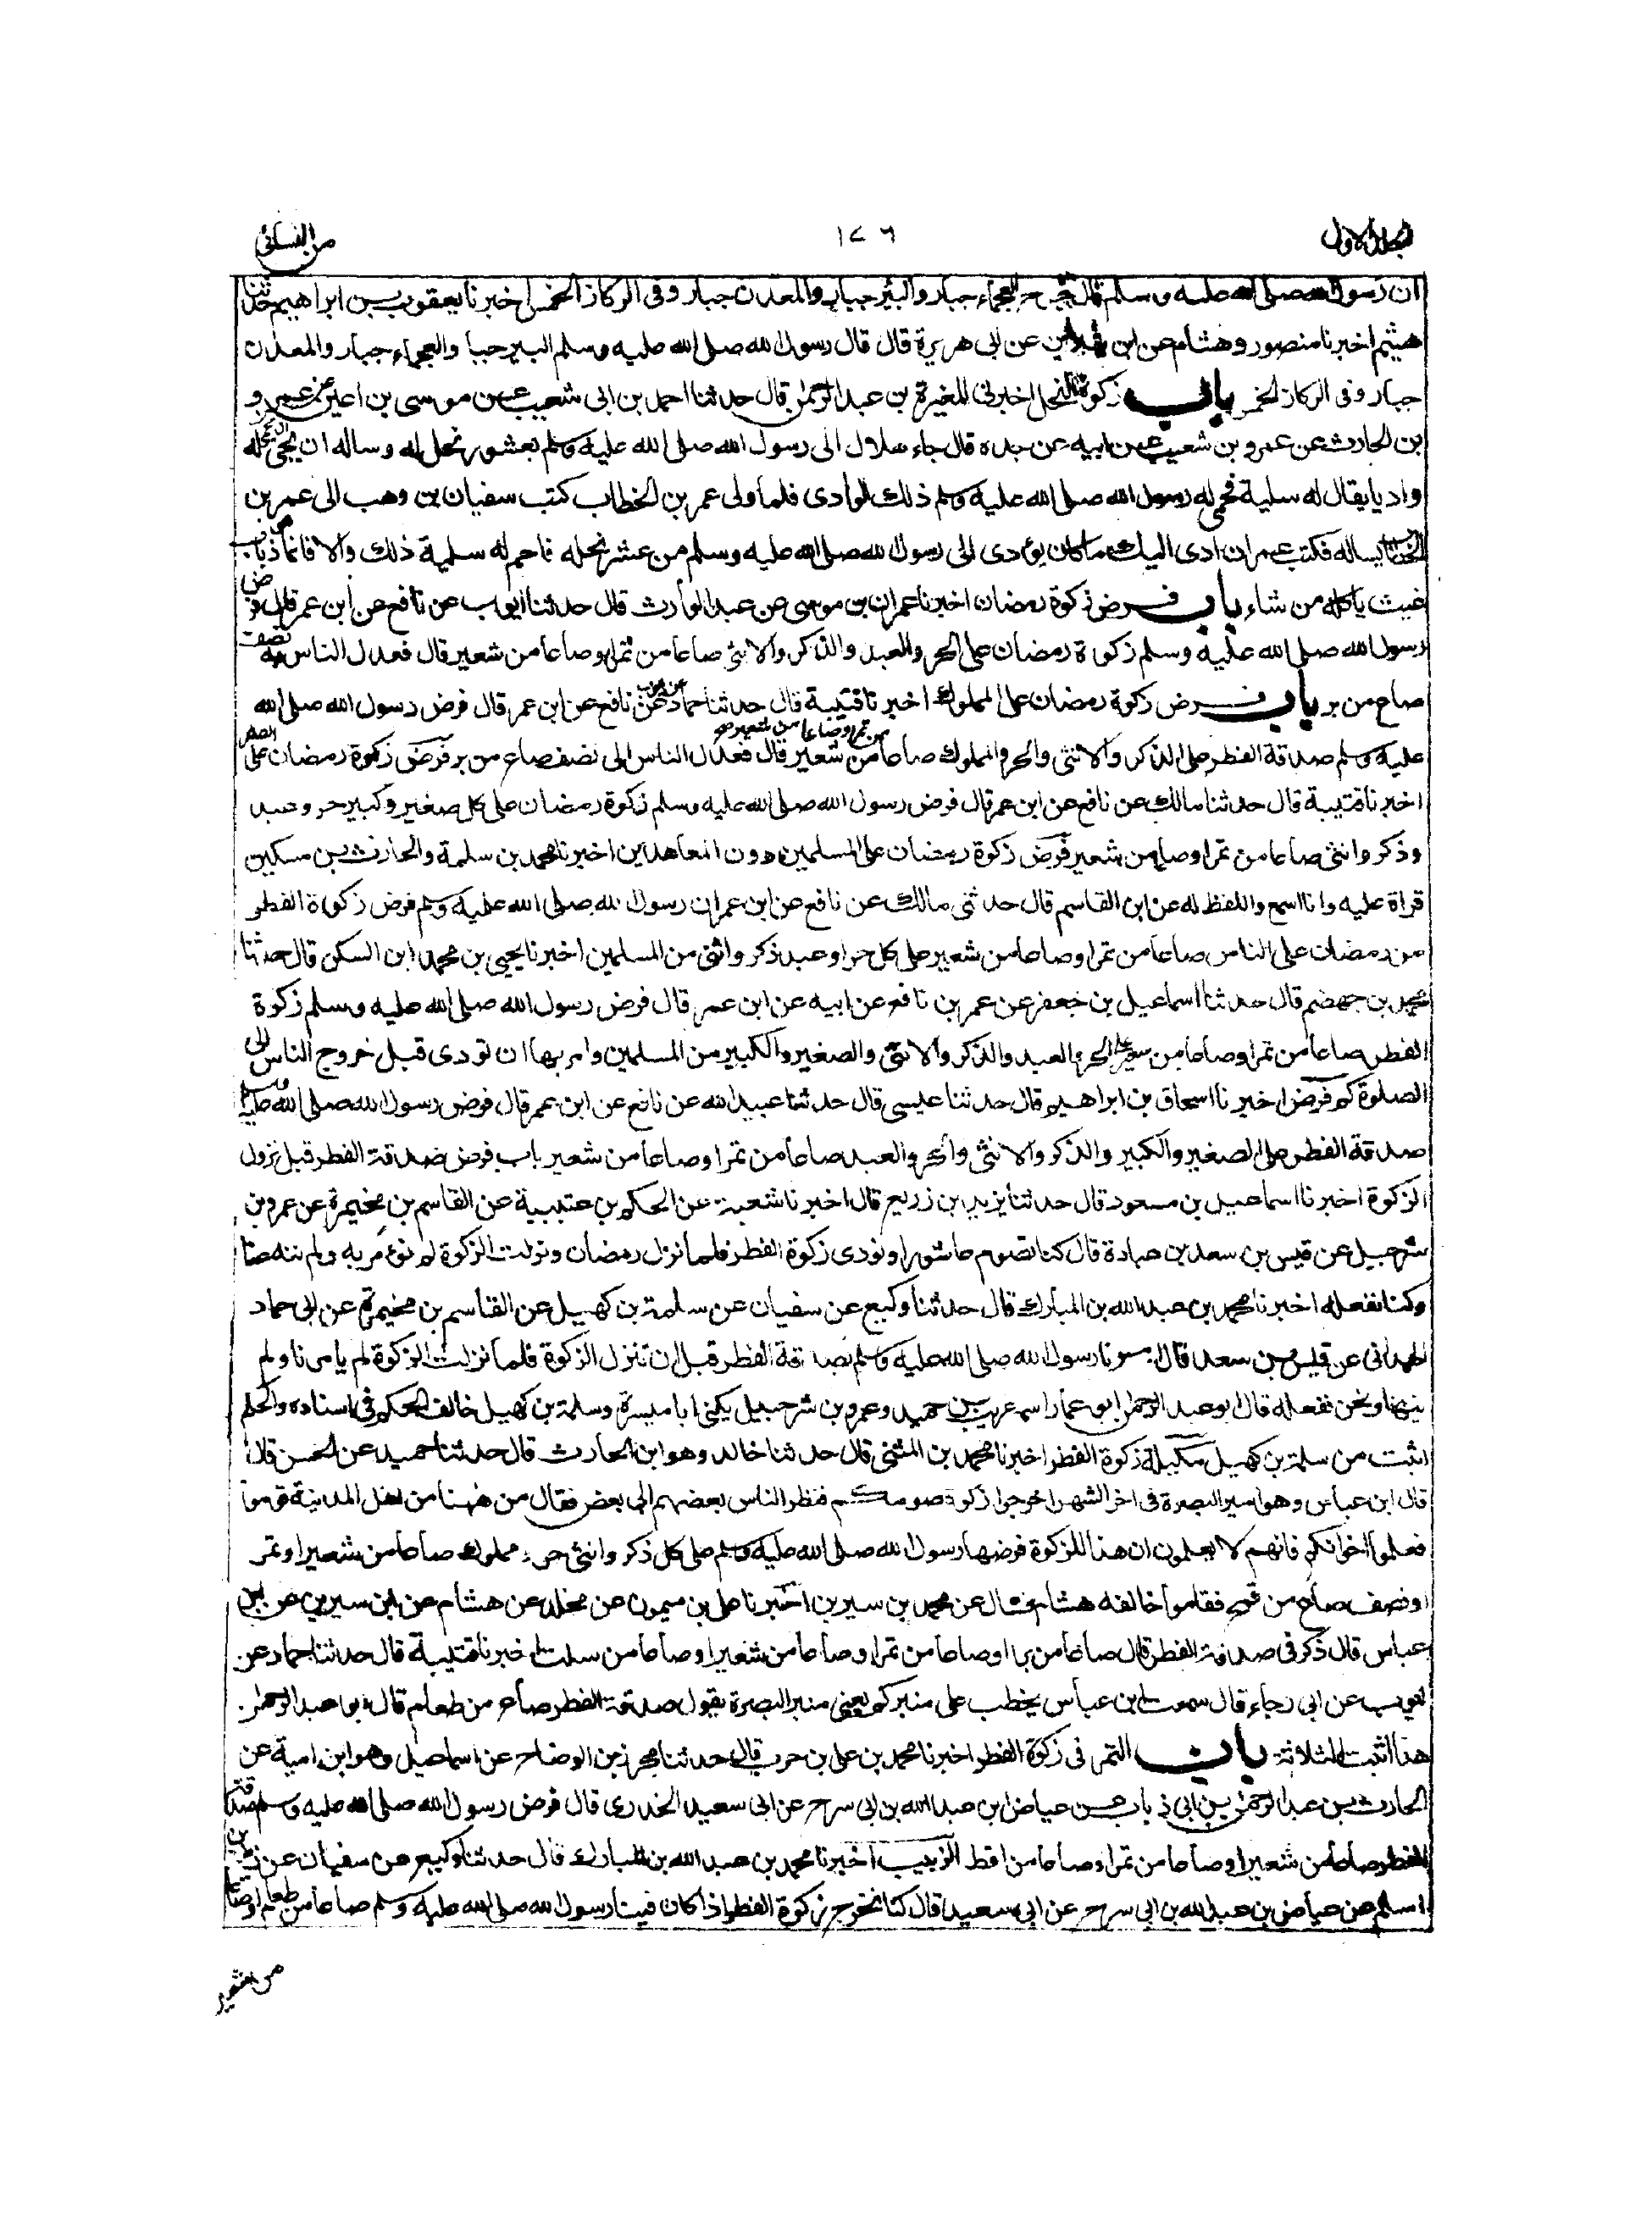 الجلد الاول
١٧٦
من النسائی
ان رسول الله صلى الله عليه وسلم قال جرح العجماء جبار والبئر جبار والمعدن جبار وفى الركاز الخمس اخبرنا يعقوب بن ابراهيم حدثنا
هشيم اخبرنا منصور وهشام عن ابن سيرين عن ابى هريرة قال قال رسول الله صلى الله عليه وسلم البير جبا والعجماء جبار والمعدن
جبار وفى الركاز الخمس باب زكوة النحل اخبرنى المغيرة بن عبد الرحمن قال حدثنا احمد بن ابى شعيب عن موسى بن اعين عن عمرو
بن الحارث عن عمرو بن شعيب عن ابيه عن جده قال جاء هلال الى رسول الله صلى الله عليه وسلم بعشور نحل له وساله ان يحمى له
واديا يقال له سلبة فحمى له رسول الله صلى الله عليه وسلم ذلك الوادى فلما ولى عمر بن الخطاب كتب سفيان بن وهب الى عمر بن
الخطاب يساله فكتب عمر ان ادى اليك ما كان يؤدى الى رسول الله صلى الله عليه وسلم من عشر نحله فاحم له سلبة ذلك والا فانما هى ذباب
غيث ياكله من شاء باب فرض زكوة رمضان اخبرنا عمران بن موسى عن عبد الوارث قال حدثنا ايوب عن نافع عن ابن عمر قال فرض
رسول الله صلى الله عليه وسلم زكوة رمضان على الحر والعبد والذكر والانثى صاعا من تمر او صاعا من شعير قال فعدل الناس به نصف
صاع من بر باب فرض زكوة رمضان على المملوك اخبرنا قتيبة قال حدثنا حماد عن ايوب عن نافع عن ابن عمر قال فرض رسول الله صلى الله
عليه وسلم صدقة الفطر على الذكر والانثى والحر والمملوك صاعا من تمر او صاعا من شعير قال فعدل الناس الى نصف صاع من بر فرض زكوة رمضان على الصغير
اخبرنا قتيبة قال حدثنا مالك عن نافع عن ابن عمر قال فرض رسول الله صلى الله عليه وسلم زكوة رمضان على كل صغير وكبير حر وعبد
وذكر وانثى صاعا من تمر او صاعا من شعير فرض زكوة رمضان على المسلمين دون المعاهدين اخبرنا محمد بن سلمة والحارث بن مسكين
قراة عليه وانا اسمع واللفظ له عن ابن القاسم قال حدثنى مالك عن نافع عن ابن عمر ان رسول الله صلى الله عليه وسلم فرض زكوة الفطر
من رمضان على الناس صاعا من تمر او صاعا من شعير على كل حر او عبد ذكر وانثى من المسلمين اخبرنا يحيى بن محمد ابن السكن قال حدثنا
محمد بن جهضم قال حدثنا اسماعيل بن جعفر عن عمر بن نافع عن ابيه عن ابن عمر قال فرض رسول الله صلى الله عليه وسلم زكوة
الفطر صاعا من تمر او صاعا من شعير على الحر والعبد والذكر والانثى والصغير والكبير من المسلمين وامر بها ان تودى قبل خروج الناس الى
الصلوة كم فرض اخبرنا اسحاق بن ابراهيم قال حدثنا عيسى قال حدثنا عبيد الله عن نافع عن ابن عمر قال فرض رسول الله صلى الله عليه وسلم
صدقة الفطر على الصغير والكبير والذكر والانثى والحر والعبد صاعا من تمر او صاعا من شعير باب فرض صدقة الفطر قبل نزول
الزكوة اخبرنا اسماعيل بن مسعود قال حدثنا يزيد بن زريع قال اخبرنا شعبة عن الحكم بن عتيبة عن القاسم بن مخيمرة عن عمرو بن
شرحبيل عن قيس بن سعد بن عبادة قال كنا نصوم عاشورا ونودى زكوة الفطر فلما نزل رمضان ونزلت الزكوة لم نؤمر به ولم ننه عنه
وكنا نفعله اخبرنا محمد بن عبد الله بن المبارك قال حدثنا وكيع عن سفيان عن سلمة بن كهيل عن القاسم بن مخيمرة عن ابى عماد
الهمدانى عن قيس بن سعد قال امرنا رسول الله صلى الله عليه وسلم بصدقة الفطر قبل ان تنزل الزكوة فلما نزلت الزكوة لم يامرنا ولم
ينهنا ونحن نفعله قال ابو عبد الرحمن ابو عمار اسمه عريب بن حميد وعمرو بن شرحبيل يكنى ابا ميسرة وسلمة بن كهيل خالف الحكم فى اسناده والحكم
اثبت من سلمة بن كهيل مكيلة زكوة الفطر اخبرنا محمد بن المثنى قال حدثنا خالد وهو ابن الحارث قال حدثنا حميد عن الحسن قال
قال ابن عباس وهو امير البصرة فى اخر الشهر اخرجوا زكوة صومكم فنظر الناس بعضهم الى بعض فقال من ههنا من اهل المدينة قوموا
فعلموا اخوانكم فانهم لا يعلمون ان هذا الزكوة فرضها رسول الله صلى الله عليه وسلم على كل ذكر وانثى حر ومملوك صاعا من شعير او تمر
او نصف صاع من قمح فقاموا خالفه هشام فقال عن محمد بن سيرين اخبرنا على بن ميمون عن مخلد عن هشام عن ابن سيرين عن ابن
عباس قال ذكر فى صدقة الفطر قال صاعا من بر او صاعا من تمر او صاعا من شعير او صاعا من سلت اخبرنا قتيبة قال حدثنا حماد عن
ايوب عن ابى رجاء قال سمعت ابن عباس يخطب على منبركم يعنى منبر البصرة يقول صدقة الفطر صاع من طعام قال ابو عبد الرحمن
هذا اثبت الثلاثة باب التمر فى زكوة الفطر اخبرنا محمد بن على بن حرب قال حدثنا محرز بن الوضاح عن اسماعيل وهو ابن امية عن
الحارث بن عبد الرحمن بن ابى ذباب عن عياض ابن عبد الله بن ابى سرح عن ابى سعيد الخدرى قال فرض رسول الله صلى الله عليه وسلم صدقة
الفطر صاعا من شعير او صاعا من تمر او صاعا من اقط الزبيب اخبرنا محمد بن عبد الله بن المبارك قال حدثنا وكيع عن سفيان عن زيد بن
اسلم عن عياض بن عبد الله بن ابى سرح عن ابى سعيد قال كنا نخرج زكوة الفطر اذا كان فينا رسول الله صلى الله عليه وسلم صاعا من طعام او صاعا
من شعير